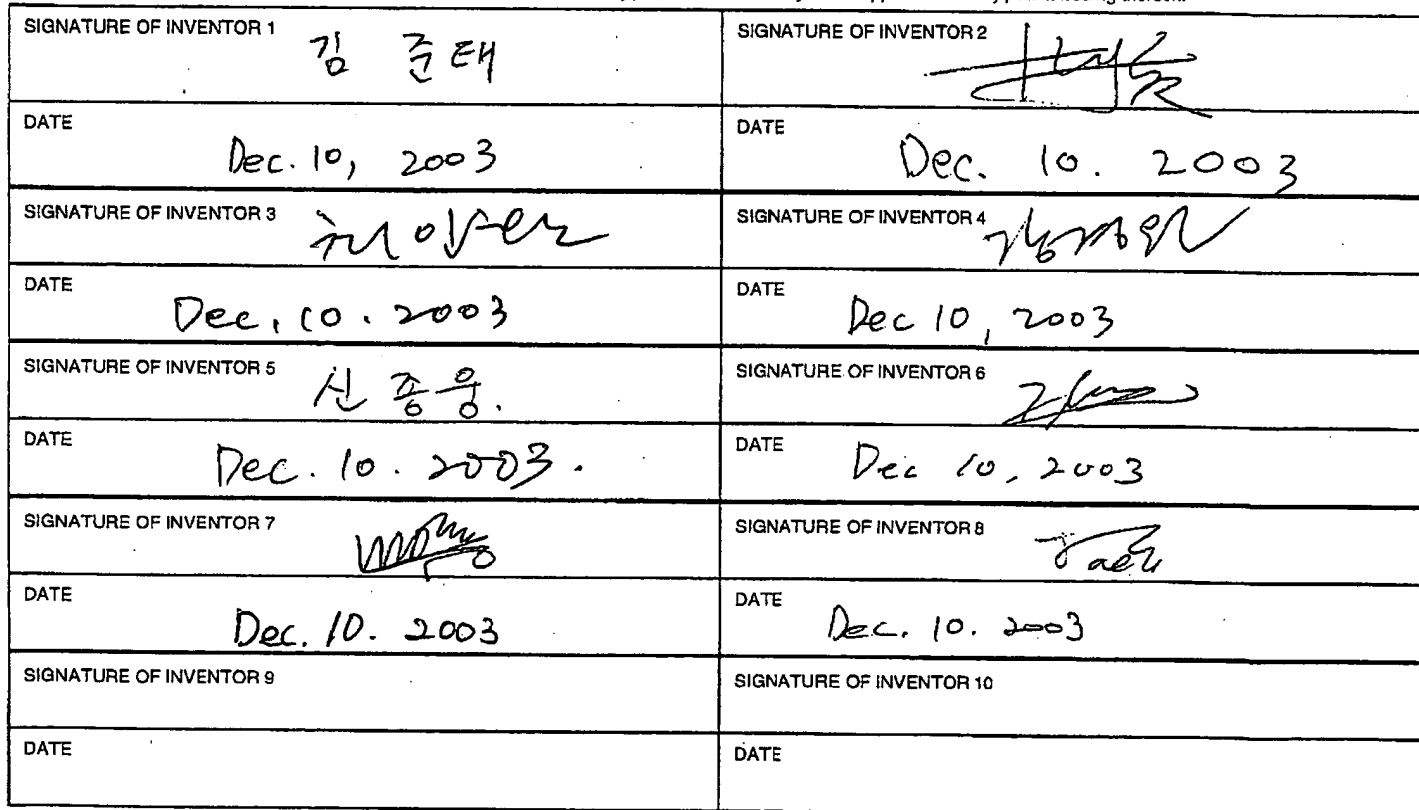 SIGNATURE OF INVENTOR 1 김 준태
SIGNATURE OF INVENTOR 2
DATE Dec. 10, 2003
DATE Dec. 10. 2003
SIGNATURE OF INVENTOR 3
SIGNATURE OF INVENTOR 4
DATE Dec. 10. 2003
DATE Dec 10, 2003
SIGNATURE OF INVENTOR 5 신 종웅.
SIGNATURE OF INVENTOR 6
DATE Dec. 10. 2003.
DATE Dec 10, 2003
SIGNATURE OF INVENTOR 7
SIGNATURE OF INVENTOR 8
DATE Dec. 10. 2003
DATE Dec. 10. 2003
SIGNATURE OF INVENTOR 9
SIGNATURE OF INVENTOR 10
DATE
DATE